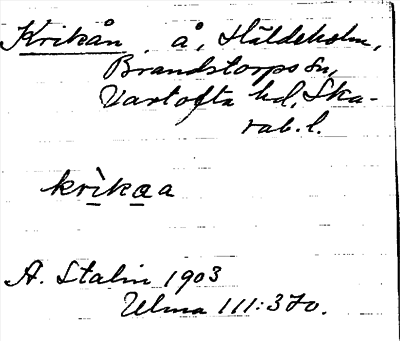 Krikån, å, Häldeholm,
Brandstorps sn,
Vartofta hd, Ska-
rab. l.
krìkaa
A. Stalin 1903
Ulma 111:370.